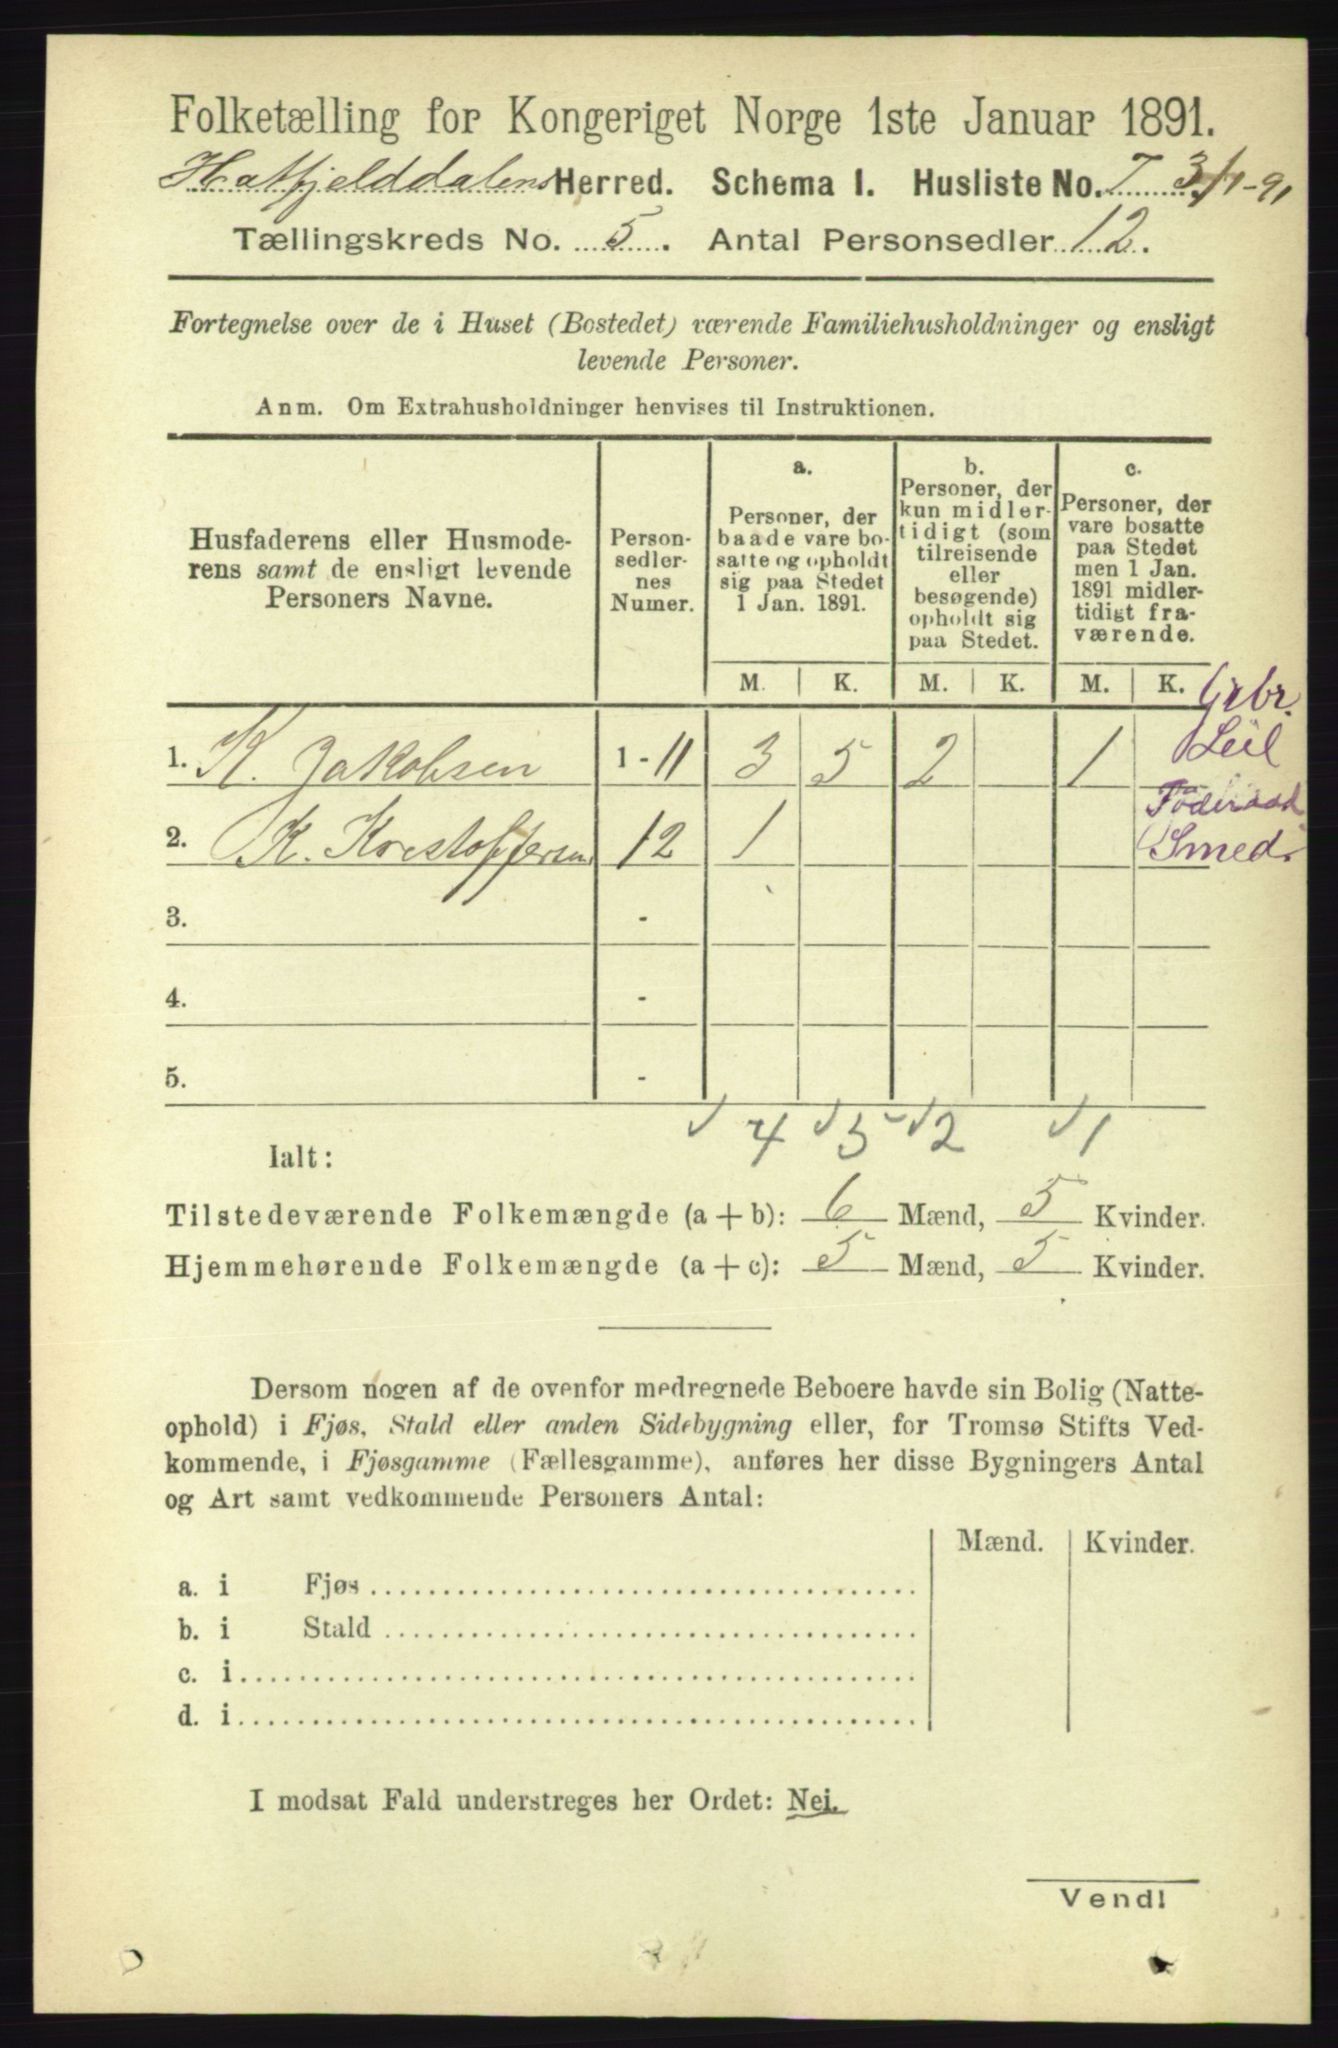 Folketælling for Kongeriget Norge 1ste Januar 1891.
Hatfjelddalens Herred. Schema 1. Husliste No. 7 3/1-91
Tællingskreds No. 5. Antal Personsedler 12.
Fortegnelse over de i Huset (Bostedet) værende Familiehusholdninger og ensligt
levende Personer.
Anm. Om Extrahusholdninger henvises til Instruktionen.
Husfaderens eller Husmode-
rens samt de ensligt levende
Personers Navne.
Person-
sedler-
nes
Numer.
a.
Personer, der
baade vare bo-
satte og opholdt
sig paa Stedet
1 Jan. 1891.
b.
Personer, der
kun midler-
tidigt (som
tilreisende
eller
besøgende)
opholdt sig
paa Stedet.
c.
Personer, der
vare bosatte
paa Stedet
men 1 Jan.
1891 midler-
tidigt fra-
værende.
M. K. M. K. M. K.
Grbr.
Leil
1. K. Jakobsen 1-11 3 5 2 1
Föderaad
Smed.
2. K. Krestoffersen 12 1
3. -
4. -
5. -
4 5 2 1
Ialt:
Tilstedeværende Folkemængde (a + b): 6 Mænd, 5 Kvinder.
Hjemmehørende Folkemængde (a + c): 5 Mænd, 5 Kvinder.
Dersom nogen af de ovenfor medregnede Beboere havde sin Bolig (Natte-
ophold) i Fjøs, Stald eller anden Sidebygning eller, for Tromsø Stifts Ved-
kommende, i Fjøsgamme (Fællesgamme), anføres her disse Bygningers Antal
og Art samt vedkommende Personers Antal:
Mænd. Kvinder.
a. i Fjøs
b. i Stald
c. i
d. i
I modsat Fald understreges her Ordet: Nei.
Vend!